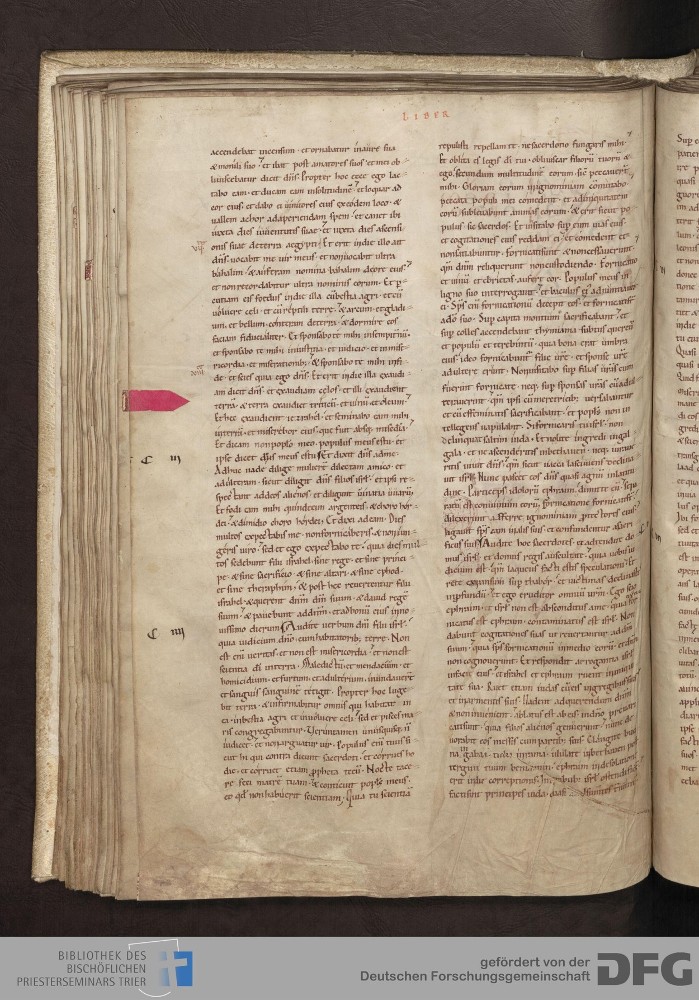 LIBER
accendebat incensum · et ornabatur inaure sua
& monili suo · et ibat post amatores suos · et mei ob-
liviscebatur dicit dn̄s. Propter hoc ecce ego lac-
tabo eam · et ducam eam in solitudinē · et loquar ad
cor eius · et dabo ei vinitores eius ex eodem loco · &
vallem achor ad aperiendam spem · et canet ibi
iuxta dies iuventutis suae · et iuxta dies ascensi-
onis suae de terra aegypti · Et erit in die illo ait
dn̄s · vocabit me vir meus · et non vocabit me ultra
baalim · & auferam nomina baalim de ore eius ·
et non recordabitur ultra nominis eorum · Et p-
cutiam eis foedus in die illa cū bestia agri · et cū
volucre celi · et cū reptili terre · & arcum · et gladi-
um · et bellum · conteram de terra · & dormire eos
faciam fiducialiter · Et sponsabo te mihi in sempiternū ·
et sponsabo te mihi in iusticia · et iudicio · et in mise-
ricordia · et miserationib; · & sponsabo te mihi in fi-
de · et scies quia ego dn̄s · Et erit in die illa exaudi-
am dicit dn̄s · exaudiam celos · et illi exaudient
terrā · & terra exaudiet triticū · et vinū · et oleum ·
Et hec exaudient iezrahel · et seminabo eam mihi
in terrā · et miserebor eius que fuit absq; misedia ·
Et dicam non poplo meo · populus meus es tu · et
ipse dicet dn̄s meus es tu · Et dicit dn̄s ad me ·
C III
Adhuc vade dilige mulierē dilectam amico · et
adulteram · sicut diligit dn̄s filios isrl · et ipsi re-
spectant ad deos alienos · et diligunt vinatia uvarū ·
Et fodi eam mihi quindecim argenteis · & choro hor-
dei · & dimidio choro hordei · Et dixi ad eam · Dies
multos expectabis me · non fornicaberis · & non eris
viro · sed et ego expectabo te · quia dies mul-
tos sedebunt filii israhel sine rege · et sine princi-
pe · & sine sacrificio · & sine altari · & sine ephod ·
et sine theraphim · & post hec revertentur filii
israhel · & querent dn̄m dm̄ suum · & david regē
suum · & pavebunt ad dn̄m · et ad bonū eius in no-
C IIII
vissimo dierum · Audite verbum dn̄i filii isrl ·
quia iudicium dn̄o cum habitatorib; terre · Non
est enī veritas · et non est misericordia · et non est
scientia dī in terra · Maledictū · et mendacium · et
homicidium · et furtum · et adulterium · inundaver̄
et sanguis sanguinē tetigit · Propter hoc luge-
bit terra · & infirmabitur omnis qui habitat in
ea · in bestia agri · et in volucre celi · sed et pisces ma-
ris congregabuntur · Verumtamen unusquisq; n̄
iudicet · et non arguatur vir · Populus enī tuus si-
cut hi qui contra dicunt sacerdoti · et corrues ho-
die · et corruet etiam ppheta tecū · Nocte tace-
re feci matrē tuam · & conticuit populs meus ·
eo qd non habuerit scientiam · Quia tu scientiā
repulisti repellam te · ne sacerdotio fungaris mihi ·
Et oblita es legis dī tui · obliviscar filiorū tuorū &
ego · secundum multitudinē eorum · sic peccaverunt
mihi · Gloriam eorum in ignominiam comutabo ·
peccata populi mei comedent · et ad iniquitatem
eorū sublevabunt animas eorum · & erit sicut po-
pulus sic sacerdos · Et visitabo sup eum vias eius ·
et cogitationes eius reddam ei · et comedent et
non saturabuntur · fornicati sunt & non cessaverunt ·
qm̄ dn̄m reliquerunt non custodiendo · Fornicatio
et vinū et ebrietas · aufert cor · Populus meus in
ligno suo interrogavit · et baculus eius adnuntiavit
ei · Sps enī fornicationū decepit eos · et fornicati st̄
a dō suo · Sup capita montium sacrificabant · et
sup colles accendebant thymiama · subtus quercū
et populū et terebintū · quia bona erat umbra
eius · ideo fornicabuntur filie ur̄e · et sponse ur̄e
adultere erunt · Non visitabo sup filias ur̄as cum
fuerint fornicate · neq; sup sponsas ur̄as cū adul-
teraverint · qm̄ ipsi cū meretricib; versabantur
et cū effeminatis sacrificabant · et populs non in-
telligens vapulabit · Si fornicaris tu isrl · non
delinquat saltim iuda · Et nolite ingredi in gal-
gala · et ne ascenderitis in bethaven · neq; iurave-
ritis vivit dn̄s · qm̄ sicut vacca lasciviens declina-
vit isrl · Nunc pascet eos dn̄s quasi agnū in latitu-
dine · Particeps idolorū ephraim · dimitte eū · sepa-
ratū est convivium eorū · fornicatione fornicati st̄ ·
dilexerunt afferre ignominiam ptectores eius ·
ligavit sps eam in alis suis · et confundentur a sacri-
ficiis suis · Audite hoc sacerdotes · et adtendite do-
mus isrl · et domus regis auscultate · quia vobis iu-
dicium est · qm̄ laqueus facti estis speculationi · Et
rete expansum sup thabor · et victimas declinastis
in pfundū · et ego eruditor omniū eorum · Ego scio
ephraim · et isrl non est absconditus a me · quia nunc for-
nicatus est ephraim · contaminatus est isrl · Non
dabunt cogitationes suas ut revertantur ad dm̄
suum · quia sps fornicationū in medio eorū · et dn̄m
non cognoverunt · Et respondebit arrogantia isrl
in facie eius · et isrl et ephraim ruent in iniqui-
tate sua · Ruet etiam iudas cū eis · in gregibus suis
et in armentis suis vadent ad querendum dn̄m
& non invenient · ablatus est ab eis · in dn̄o prevari-
cati sunt · quia filios alienos genuerunt · nunc de-
vorabit eos mensis cum partib; suis · Clangite bucci-
na in gabaa · tuba in rama · ululate in bethaven post
tergum tuum beniamin · ephraim in desolatione
erit in die correptionis · In tribub; isrl ostendi fidē
facti sunt principes iuda · quasi assumentes terminū
BIBLIOTHEK DES
BISCHÖFLICHEN
PRIESTERSEMINARS TRIER
gefördert von der
Deutschen Forschungsgemeinschaft
DFG